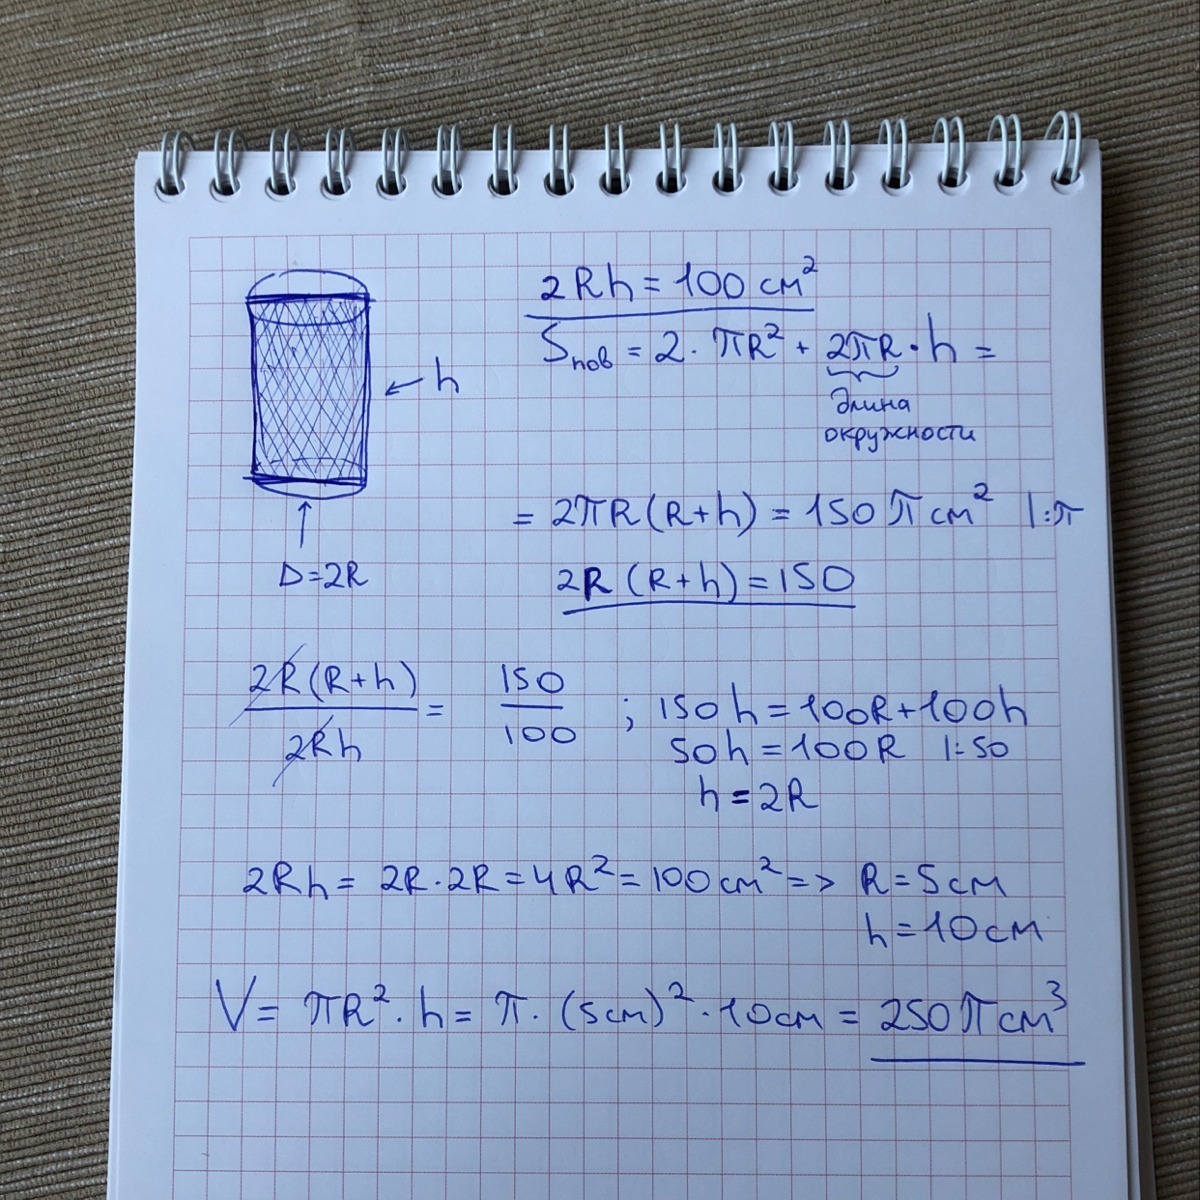 2Rh = 100 см²
Sпов = 2 · πR² + 2πR · h =
длина
окружности
h
= 2πR (R+h) = 150 π см² |:π
D=2R
2R (R+h) = 150
2R (R+h) / 2Rh = 150 / 100 ; 150 h = 100R + 100h
50h = 100R |:50
h = 2R
2Rh = 2R · 2R = 4R² = 100 см² => R = 5 см
h = 10 см
V = πR² · h = π · (5см)² · 10 см = 250 π см³